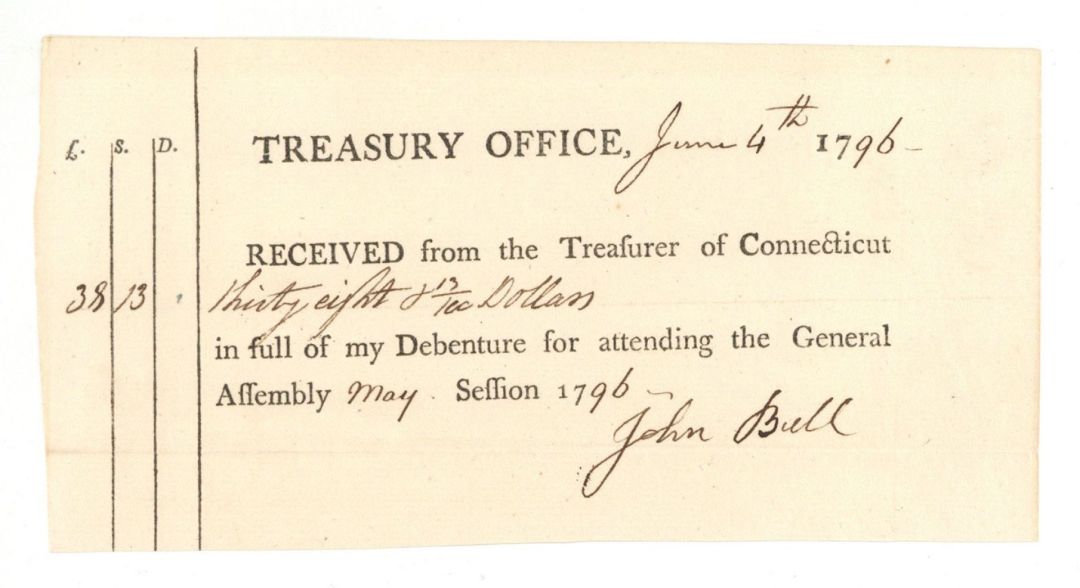 £. S. D.
TREASURY OFFICE, June 4th 1796
RECEIVED from the Treaſurer of Connecticut
38 13 Thirty eight & 13/100 Dollars
in full of my Debenture for attending the General
Aſſembly May Seſſion 1796
John